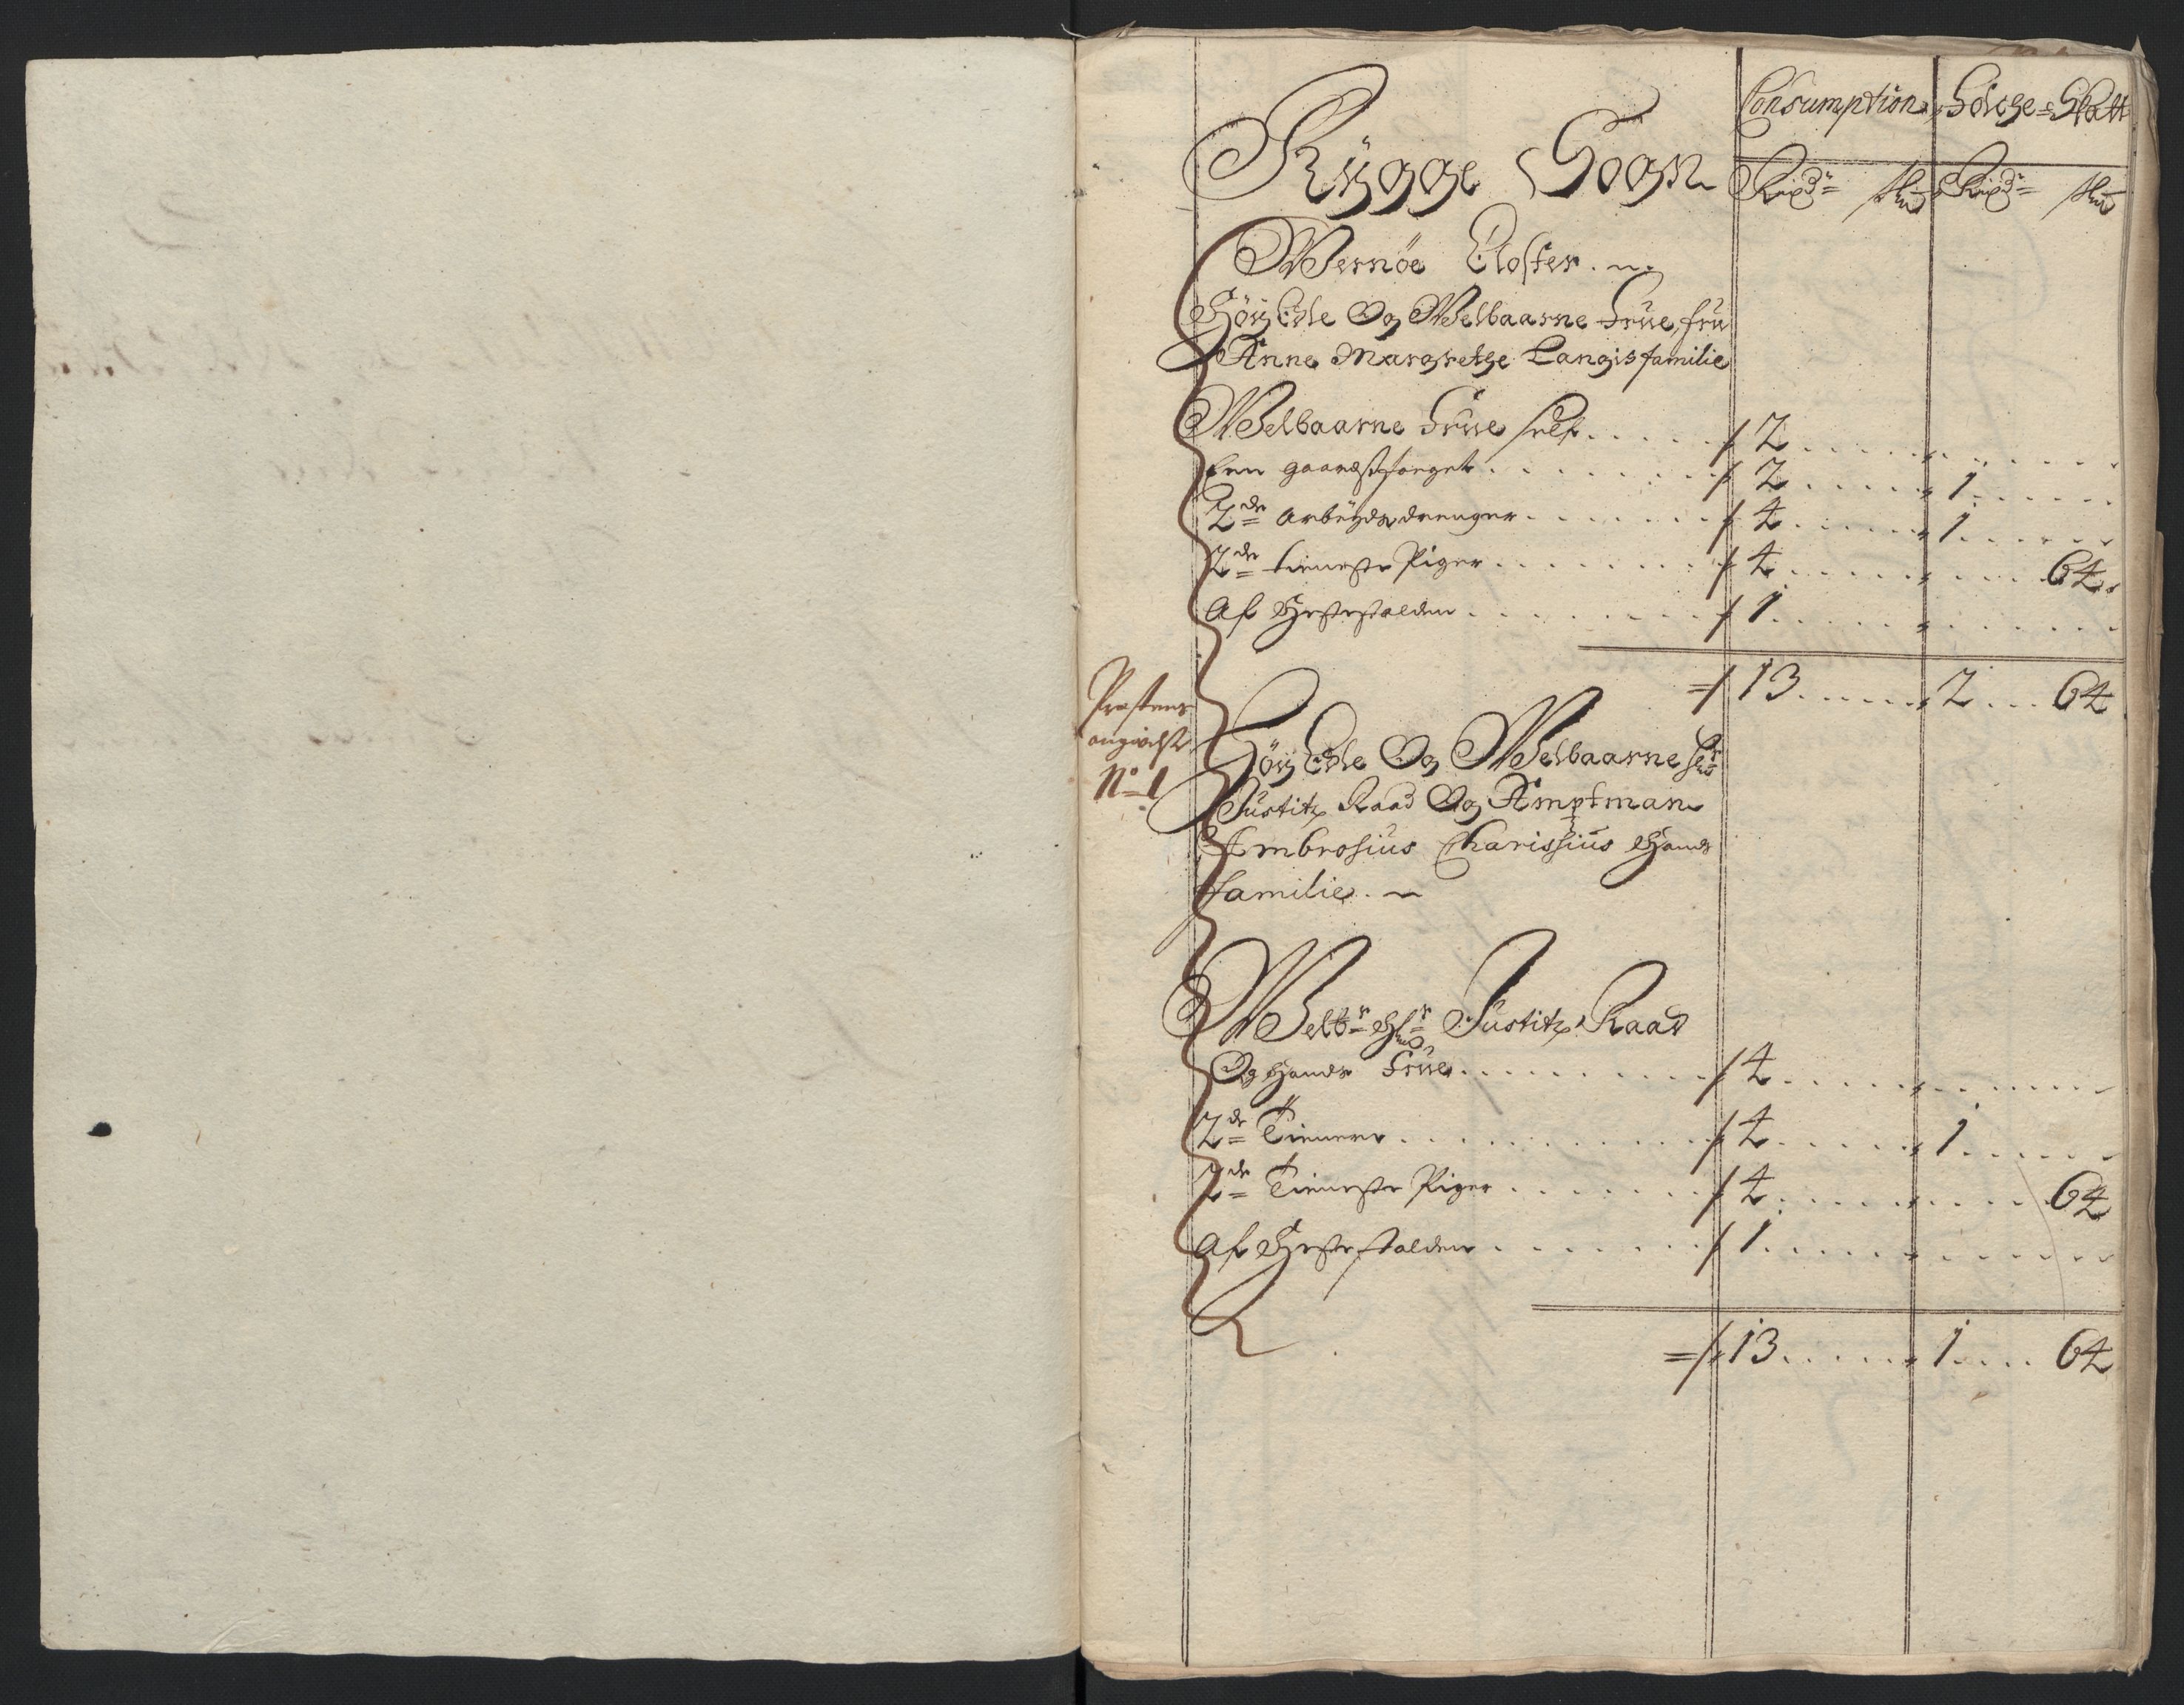 Consumption Folche-Skatt
Rygge Sogn Rixdr sk Rixdr sk
Wernöe Closter.
Höy Edle Og Welbaarne Frue, fru
Anne Margrethe Langis familie
Welbaarne Frue self 2
Een gaardsfoeget 2 1
2de arbeyds drenger 4 1
2de tieneste Piger 4 64
Af Hestestalden 1
13 2 64
Præstens
angivelse
No 1
Höy Edle Og Welbaarne Hr
Justitz Raad Og Amptman
Ambrosius Charissius Hands
familie.
Welbr Hr Justitz Raad
Og Hands Frue 4
2de Tienere 4 1
2de Tieneste Piger 4 64
Af Hestestalden 1
13 1 64